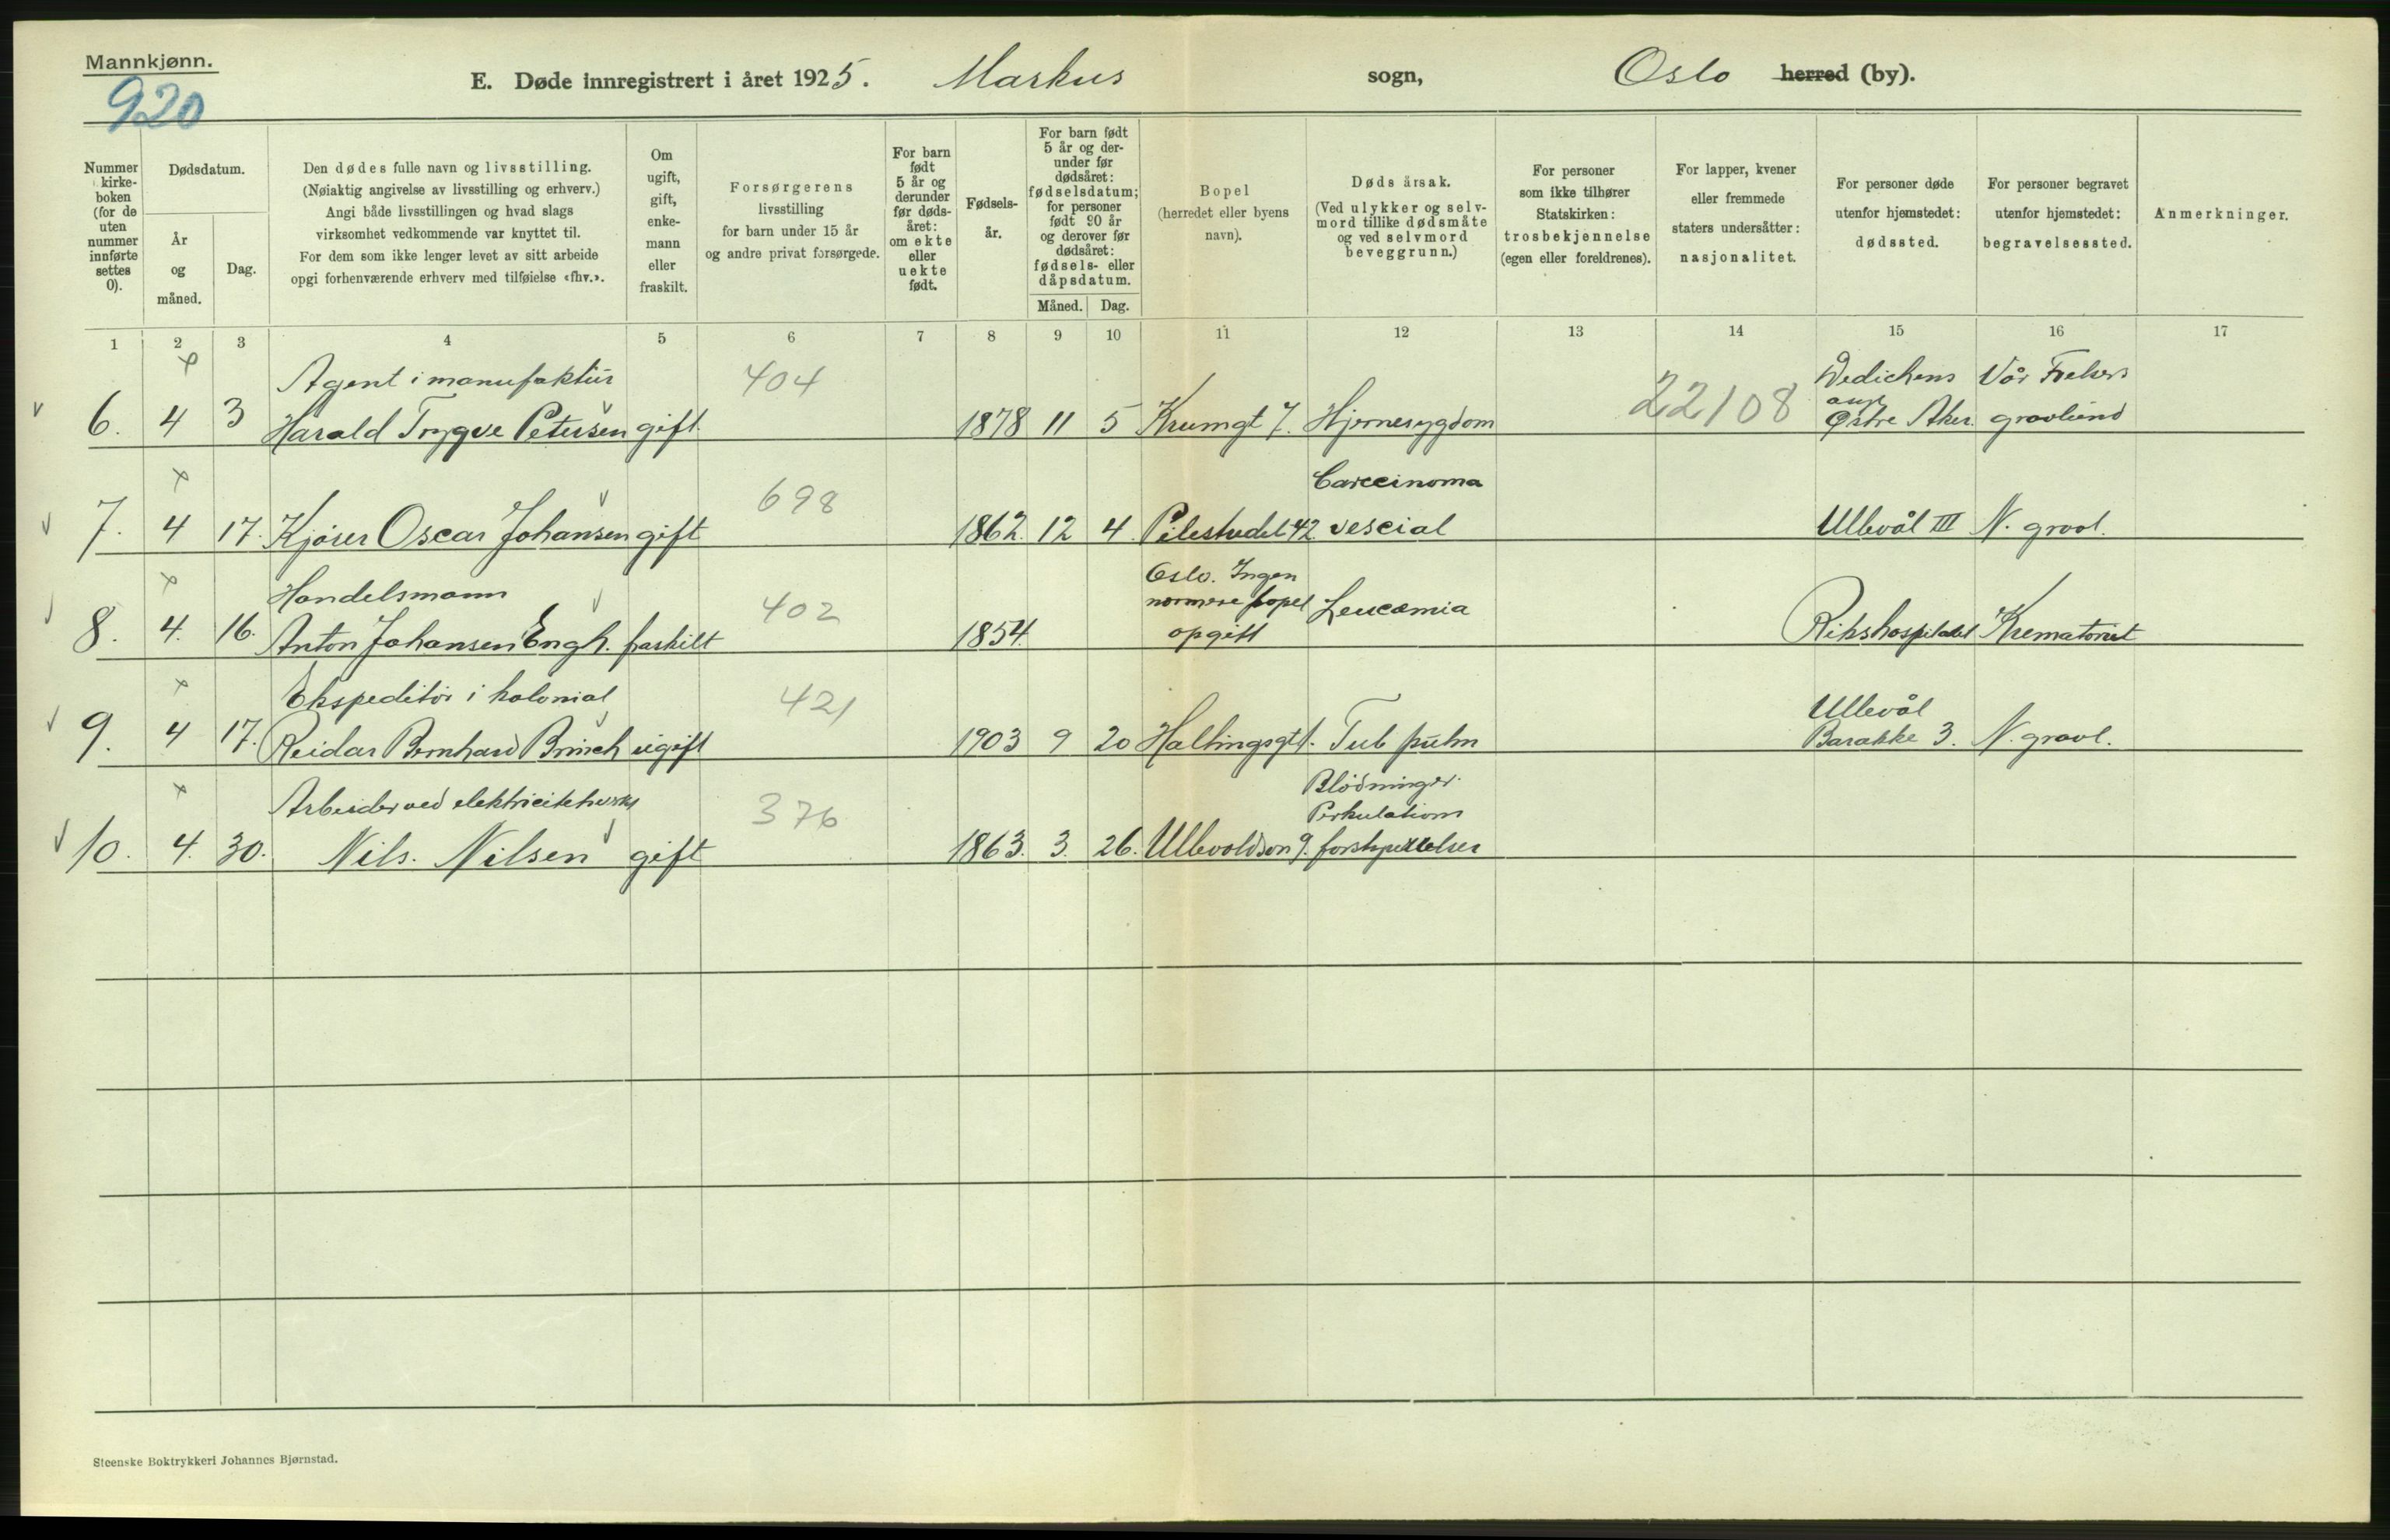 Mannkjønn.
920
E. Døde innregistrert i året 1925. Markus sogn, Oslo herred (by).
Nummer i kirkeboken (for de uten nummer innførte settes 0).
Dødsdatum.
År og måned.
Dag.
Den dødes fulle navn og livsstilling.
(Nøiaktig angivelse av livsstilling og erhverv.)
Angi både livsstillingen og hvad slags
virksomhet vedkommende var knyttet til.
For dem som ikke lenger levet av sitt arbeide
opgi forhenværende erhverv med tilføielse «fhv.».
Om ugift, gift, enkemann eller fraskilt.
Forsørgerens
livsstilling
for barn under 15 år
og andre privat forsørgede.
For barn født 5 år og derunder før dødsåret: om ekte eller uekte født.
Fødselsår.
For barn født 5 år og derunder før dødsåret: fødselsdatum; for personer født 90 år og derover før dødsåret: fødsels- eller dåpsdatum.
Måned. Dag.
Bopel
(herredet eller byens
navn).
Dødsårsak.
(Ved ulykker og selvmord tillike dødsmåte og ved selvmord beveggrunn.)
For personer
som ikke tilhører
Statskirken:
trosbekjennelse
(egen eller foreldrenes).
For lapper, kvener
eller fremmede
staters undersåtter:
nasjonalitet.
For personer døde
utenfor hjemstedet:
dødssted.
For personer begravet
utenfor hjemstedet:
begravelsessted.
Anmerkninger.
1 2 3 4 5 6 7 8 9 10 11 12 13 14 15 16 17
Agent i manufaktur 404 Dedichens Vår Frelsers
asyl
6. 4 3 Harald Trygve Petersen gift. 1878 11 5 Krumgt 7. Hjernesygdom 22108 Østre Aker. gravlund
698 Carcinoma
7. 4 17. Kjører Oscar Johansen gift 1862. 12 4. Pilestredet 42. vescial Ullevål III N. gravl.
Handelsmann 402 Oslo. Ingen
nærmere bopel
8. 4. 16. Anton Johansen Engh. fraskilt 1854. opgitt Leucæmia Rikshospitalet Krematoriet
Ekspeditør i kolonial 421 Ullevål
9. 4 17. Reidar Bernhard Brinch ugift 1903 9 20 Hallingsgt 1. Tub pulm Barakke 3. N. gravl.
Arbeider ved elektricitetsverk 376 Blödninger.
Perkulations
10. 4. 30. Nils. Nilsen gift 1863. 3. 26. Ullevoldsvn 9. forstyrrelser
Steenske Boktrykkeri Johannes Bjørnstad.